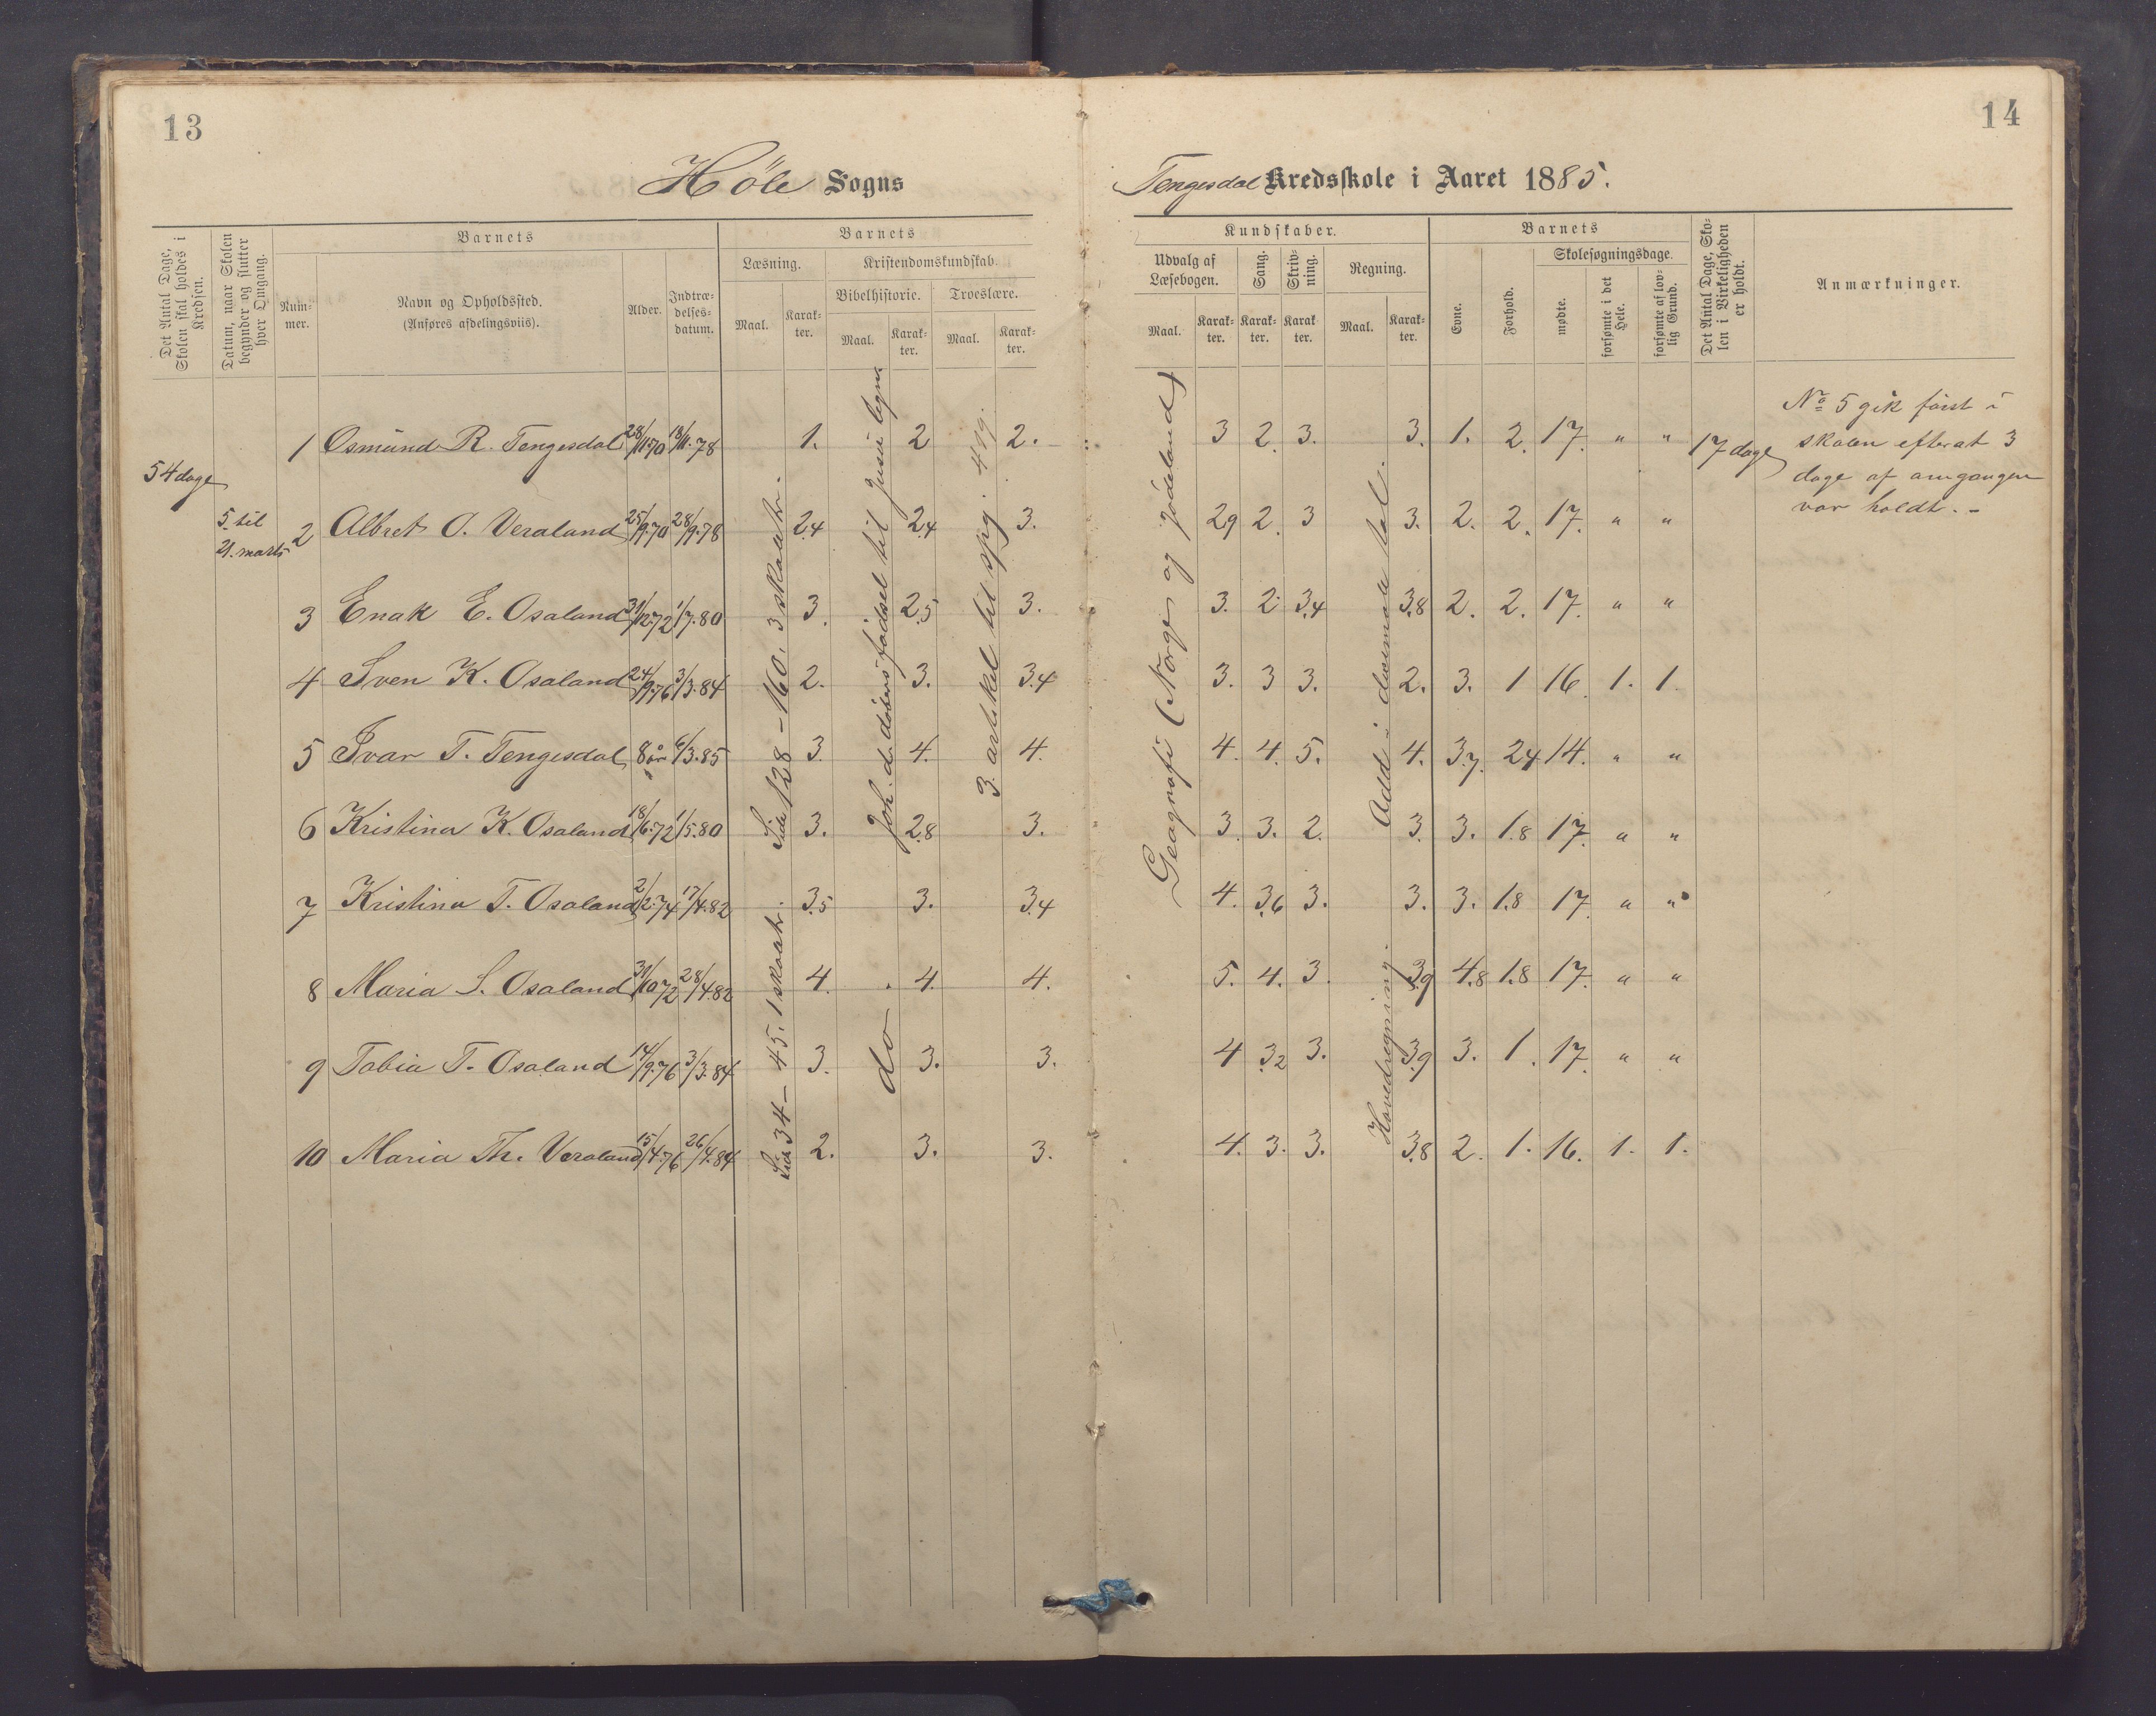 13
14
Höle Sogns
Tengesdal Kredsskole i Aaret 1885.
Det Antal Dage, Skolen skal holdes i Kredsen.
Datum, naar Skolen begynder og slutter hver Omgang.
Barnets
Num-
mer.
Navn og Opholdssted.
(Anføres afdelingsviis).
Alder.
Indtræ-
delses-
datum.
Barnets
Læsning.
Maal.
Karak-
ter.
Kristendomskundskab.
Bibelhistorie.
Maal.
Karak-
ter.
Troeslære.
Maal.
Karak-
ter.
Kundskaber.
Udvalg af
Læsebogen.
Maal.
Karak-
ter.
Sang.
Karak-
ter.
Skriv-
ning.
Karak-
ter.
Regning.
Maal.
Karak-
ter.
Barnets
Evne.
Forhold.
Skolesøgningsdage.
mødte.
forsømte i det Hele.
forsømte af lov-
lig Grund.
Det Antal Dage, Sko-
len i Virkeligheden
er holdt.
Anmærkninger.
54 dage
5. til
21. marts
1 Osmund R. Tengesdal 28/11.70 18/11.78 1. 2 2. 3 2. 3. 3. 1. 2. 17. " " 17 dage
2 Albret O. Veraland 25/9.70 28/9.78 2.4 2.4 3. 2.9 2. 3 3. 2. 2. 17. " "
3 Enak E. Osaland 31/12.72 1/7.80 3. 2.5 3. 3. 2. 3.4 3.8 2. 2. 17. " "
4 Sven K. Osaland 24/9.76 3/3.84 2. 3. 3.4 3. 3 3. 2. 3. 1 16. 1. 1.
5 Ivar T. Tengesdal 8 år 6/3.85 3. 4. 4. 4. 4. 5. 4. 3.7. 2.4 14. " "
6 Kristina K. Osaland 18/6.72 1/5.80 3. 2.8 3. 3. 3. 2. 3. 3. 1.8 17. " "
7 Kristina T. Osaland 2/2.74 17/4.82 3.5 3. 3.4 4. 3.6 3. 3. 3. 1.8 17. " "
8 Maria S. Osaland 31/10.72 28/4.82 4. 4. 4. 5. 4. 3. 3.9 4.8 1.8 17. " "
9 Tobia T. Osaland 14/9.76 3/3.84 3. 3. 3. 4 3.2 3. 3.9 3. 1. 17. " "
10 Maria Th. Veraland 15/4.76 26/4.84 2. 3. 3. 4. 3. 3. 3.8 2. 1. 16. 1. 1.
Side 128 - 160. 3 skoletr.
Side 34 - 45. 1 skoletr.
Joh. d. døbers fødsel til Jesu
do
3. artikel til spg. 419.
Geografi (Norge og Jødeland)
Add. i decimale tal.
Hovedregning.
No 5 gik først i
skolen efterat 3
dage af omgangen
var holdt. -